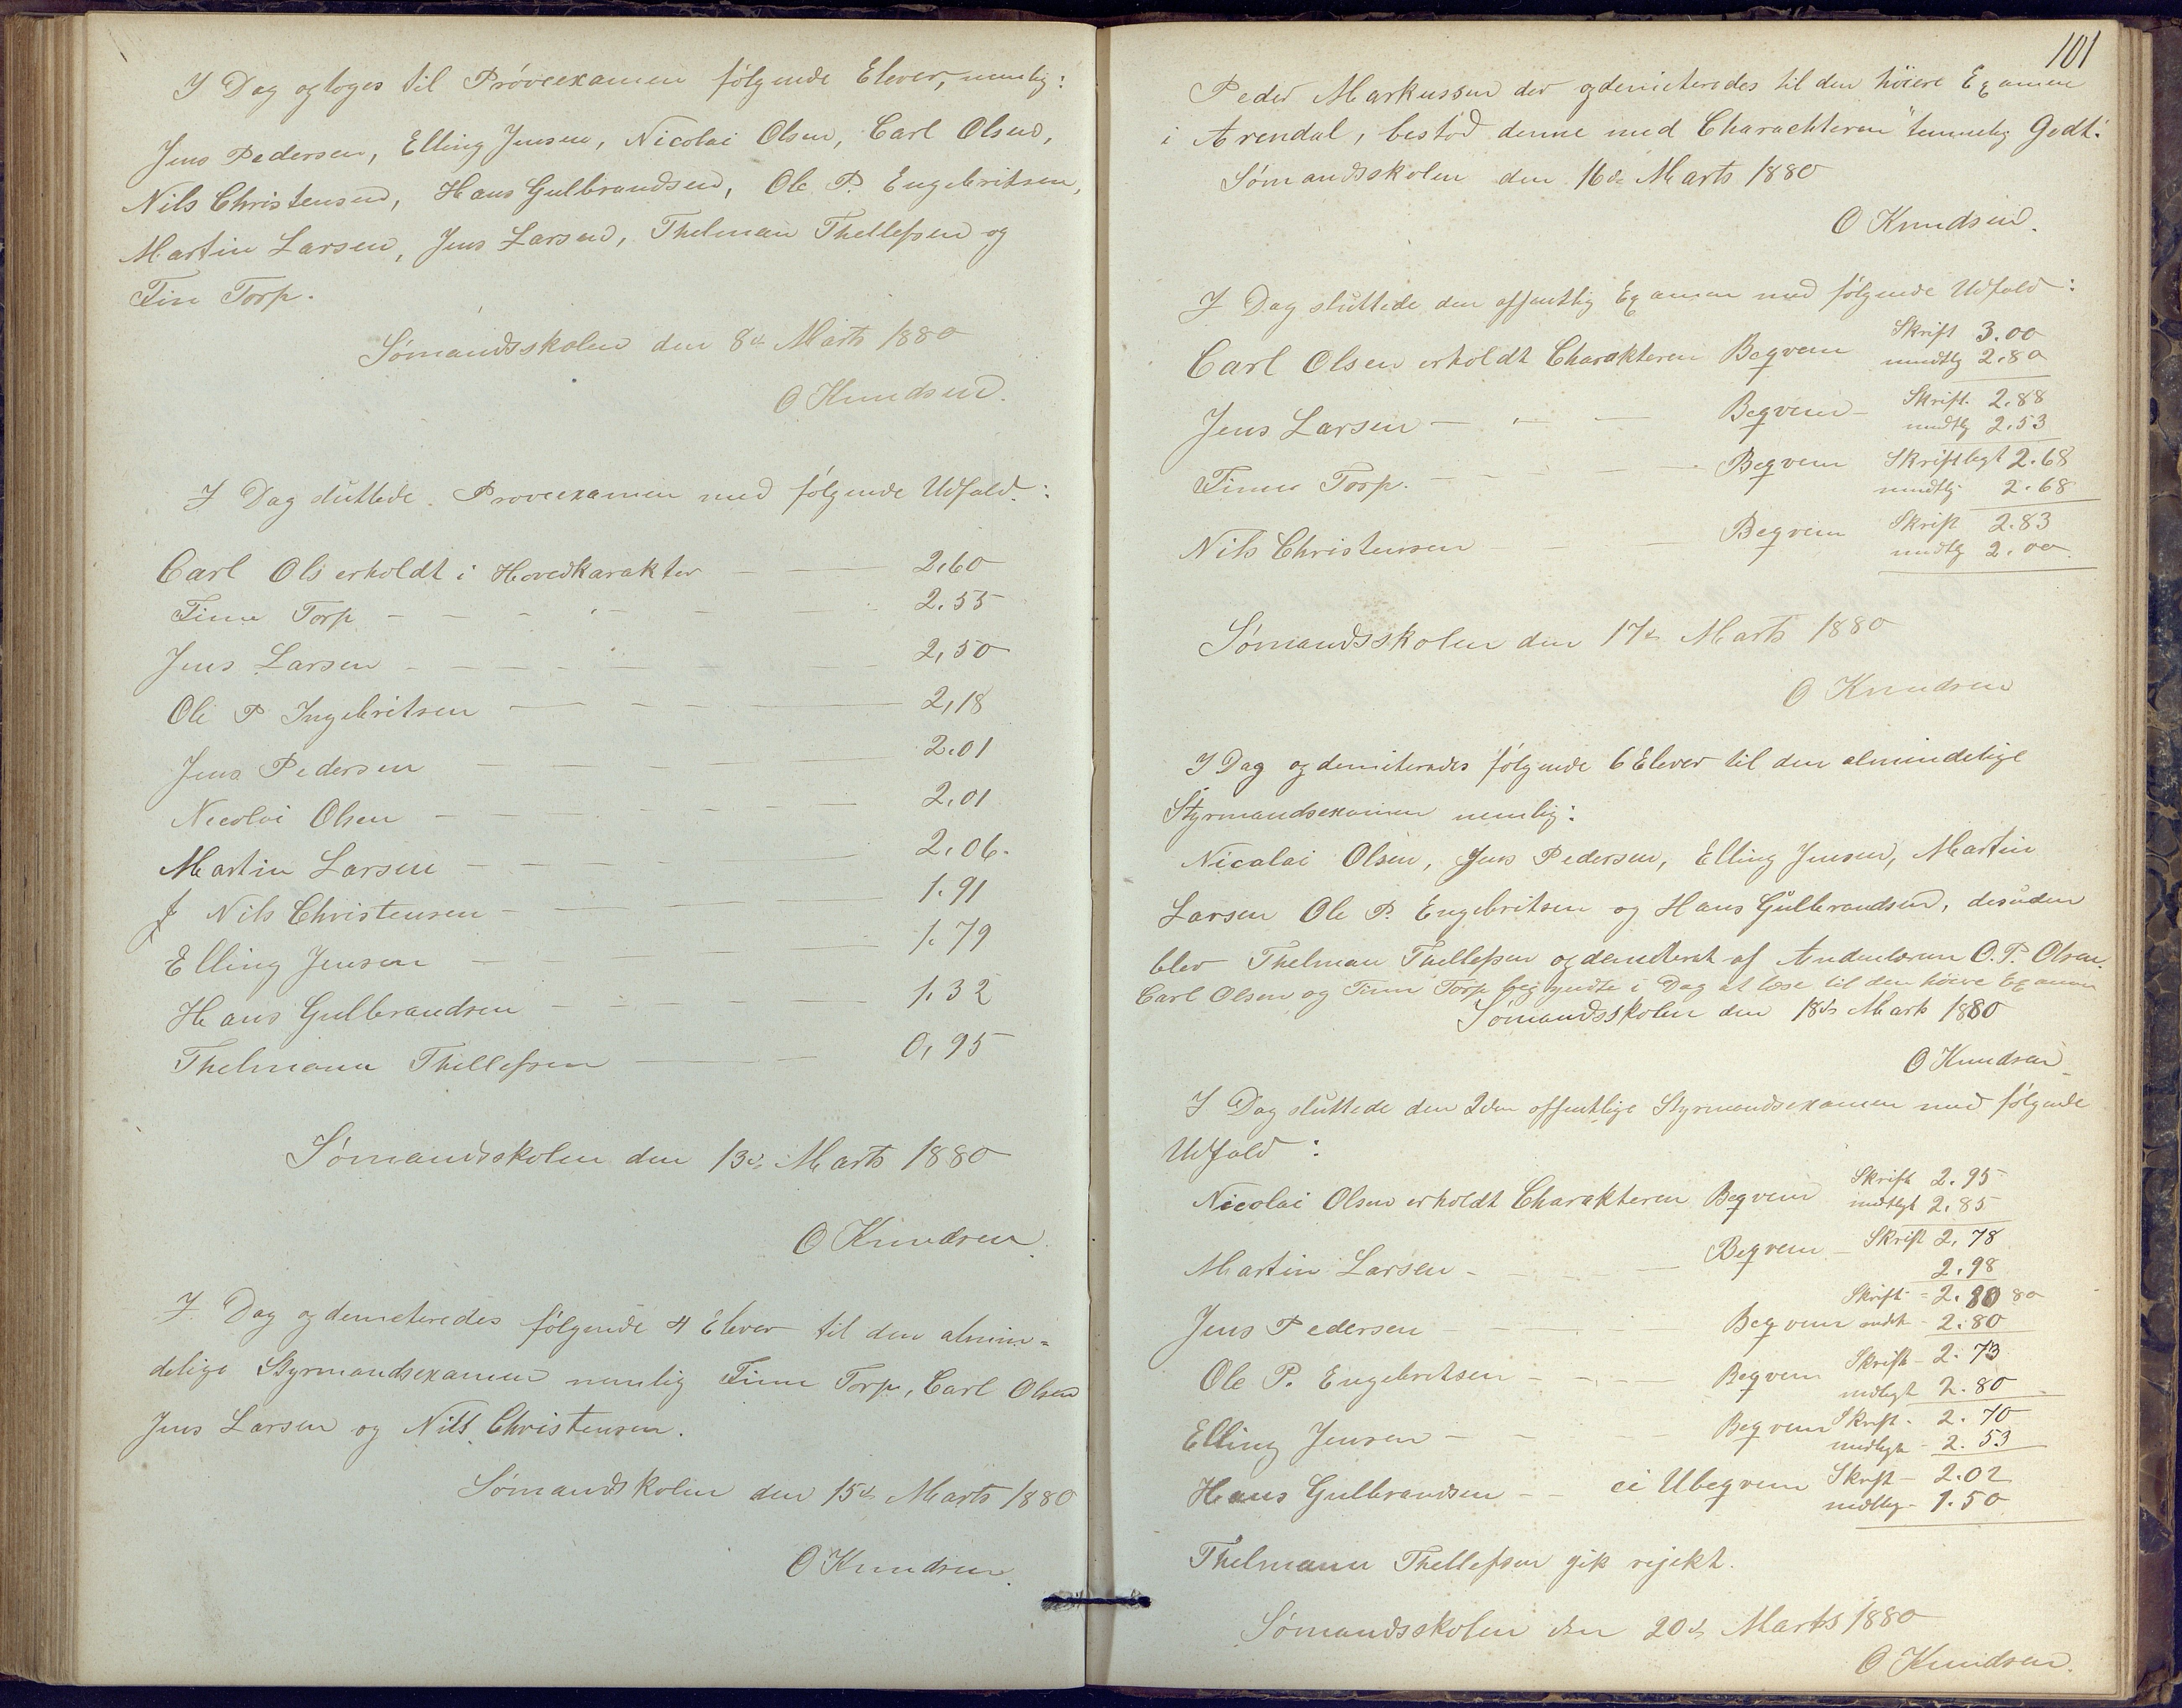 I Dag optoges til Prøveexamen følgende Elever, nemlig:
Jens Pedersen, Elling Jensen, Nicolai Olsen, Carl Olsen,
Nils Christensen, Hans Gulbrandsen, Ole P. Engebritsen,
Martin Larsen, Jens Larsen, Thelman Thellefsen og
Fin Torp.
Sømandsskolen den 8de Marts 1880
O Knudsen.
I Dag sluttede Prøveexamen med følgende Udfald:
Carl Ols erholdt i Hovedkarakter — — 2,60
Finn Torp — — — — — 2.55
Jens Larsen — — — — — 2,50
Ole P Ingebritsen — — — — 2,18
Jens Pedersen — — — — 2.01
Nicolai Olsen — — — — 2,01
Martin Larsen — — — — 2,06.
Nils Christensen — — — — 1.91
Elling Jensen — — — — 1.79
Hans Gulbrandsen — — — — 1.32
Thelmann Thellefsen — — 0,95
Sømandsskolen den 13de Marts 1880
O Knudsen.
I Dag ogdemeteredes følgende 4 Elever til den almin=
delige Styrmandsexamen nemlig Finn Torp, Carl Olsen
Jens Larsen og Nils Christensen.
Sømandskolen den 15de Marts 1880
O Knudsen.
101
Peder Markussen der ogdemiteredes til den høiere Examen
i Arendal, bestod denne med Charachteren "temmelig Godt".
Sømandsskolen den 16de Marts 1880
O Knudsen.
I Dag sluttede den offentlig Examen med følgende Udfald:
Carl Olsen erholdt Charakteren Beqvem Skrift 3.00
mundtlg 2.80
Jens Larsen — — — Beqvem — Skrift. 2.88
mundtlg 2.53
Finn Torp. — — — Beqvem Skriftlegt 2.68
mundtlg 2.68
Nils Christensen — — — Beqvem Skrift 2.83
mundtlg 2.00.
Sømandsskolen den 17de Marts 1880
O Knudsen
I Dag ogdemiterades følgende 6 Elever til den almindelige
Styrmandsexamen nemlig:
Nicolai Olsen, Jens Pedersen, Elling Jensen, Martin
Larsen Ole P. Engebritsen og Hans Gulbrandsen, desuden
blev Thelman Thellefsen ogdemiteret af Andenlæreren O. P. Olsen.
Carl Olsen og Finn Torp begyndte i Dag at læse til den høiere Examen
Sømandsskolen den 18de Marts 1880
O Knudsen
I Dag sluttede den 2den offentlige Styrmandsexamen med følgende
Udfald:
Nicolai Olsen erholdt Charakteren Beqvem Skrift 2.95
mdtlgt 2.85
Martin Larsen — — — Beqvem — Skrift 2,78
2.98
Jens Pedersen — — — Beqvem Skrift = 2.80 80
mdt — 2.80
Ole P. Engebretsen — — — Beqvem Skrift — 2.73
mdlegt 2.80
Elling Jensen — — Beqvem Skrift. 2.70
mdlegt — 2.53
Hans Gulbrandsen — — ei Ubeqvem Skrift — 2.02
mdtlg — 1.50
Thelmann Thellefsen gik rejekt.
Sømandsskolen den 20de Marts 1880
O Knudsen.